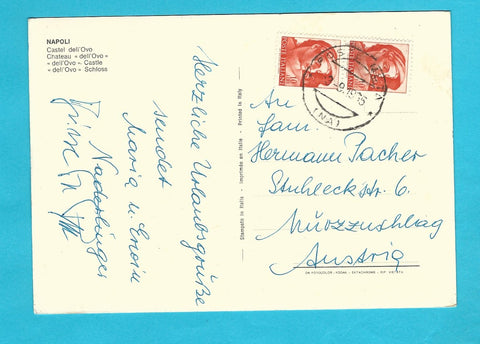 NAPOLI
Castel dell'Ovo
Chateau « dell'Ovo »
« dell'Ovo » Castle
« dell'Ovo » Schloss
Herzliche Urlaubsgrüße
sendet
Maria u. Erwin
Naderlinger
Stampato in Italia - Imprimée en Italie - Printed in Italy
(NA)
An
Fam.
Hermann Pacher
Stuhleckstr. 6
Mürzzuschlag
Austria